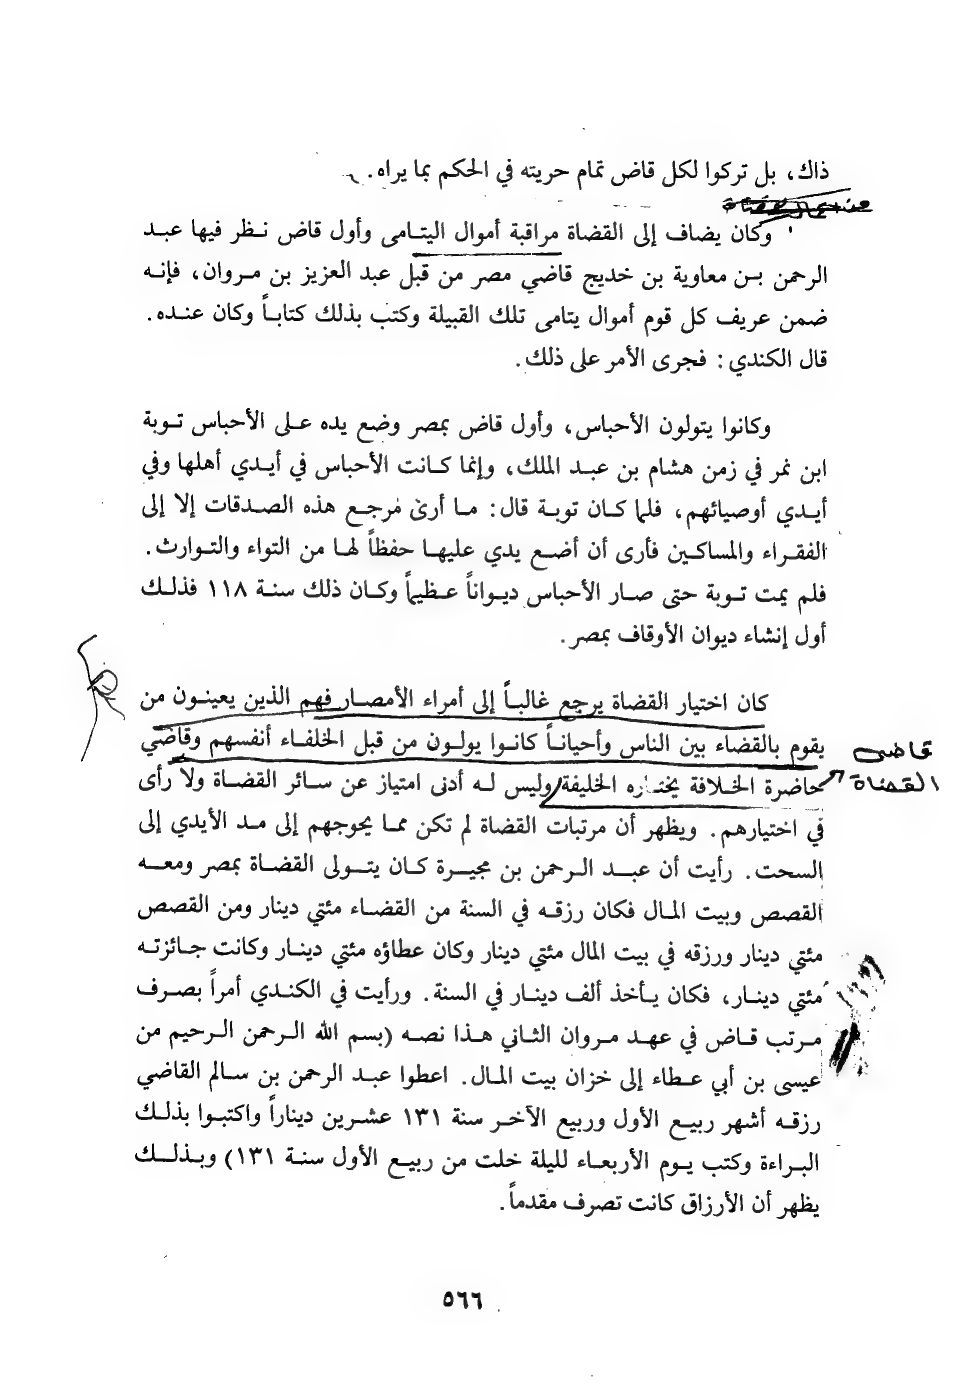 ذاك، بل تركوا لكل قاض تمام حريته في الحكم بما يراه.
وكان يضاف إلى القضاة مراقبة أموال اليتامى وأول قاض نظر فيها عبد
الرحمن بن معاوية بن خديج قاضي مصر من قبل عبد العزيز بن مروان، فإنه
ضمن عريف كل قوم أموال يتامى تلك القبيلة وكتب بذلك كتاباً وكان عنده.
قال الكندي: فجرى الأمر على ذلك.
وكانوا يتولون الأحباس، وأول قاض بمصر وضع يده على الأحباس توبة
ابن نمر في زمن هشام بن عبد الملك، وإنما كانت الأحباس في أيدي أهلها وفي
أيدي أوصيائهم، فلما كان توبة قال: ما أرى مرجع هذه الصدقات إلا إلى
الفقراء والمساكين فأرى أن أضع يدي عليها حفظاً لها من التواء والتوارث.
فلم يمت توبة حتى صار الأحباس ديواناً عظيماً وكان ذلك سنة ١١٨ فذلك
أول إنشاء ديوان الأوقاف بمصر.
كان اختيار القضاة يرجع غالباً إلى أمراء الأمصار فهم الذين يعينون من
يقوم بالقضاء بين الناس وأحياناً كانوا يولون من قبل الخلفاء أنفسهم وقاضي
قاضي
حاضرة الخلافة يختاره الخليفة وليس له أدنى امتياز عن سائر القضاة ولا رأى
القضاة
في اختيارهم. ويظهر أن مرتبات القضاة لم تكن مما يحوجهم إلى مد الأيدي إلى
السحت. رأيت أن عبد الرحمن بن مجيرة كان يتولى القضاة بمصر ومعه
القصص وبيت المال فكان رزقه في السنة من القضاء مئتي دينار ومن القصص
مئتي دينار ورزقه في بيت المال مئتي دينار وكان عطاؤه مئتي دينار وكانت جائزته
مئتي دينار، فكان يأخذ ألف دينار في السنة. ورأيت في الكندي أمراً بصرف
مرتب قاض في عهد مروان الثاني هذا نصه (بسم الله الرحمن الرحيم من
عيسى بن أبي عطاء إلى خزان بيت المال. اعطوا عبد الرحمن بن سالم القاضي
رزقه أشهر ربيع الأول وربيع الآخر سنة ١٣١ عشرين ديناراً واكتبوا بذلك
البراءة وكتب يوم الأربعاء لليلة خلت من ربيع الأول سنة ١٣١) وبذلك
يظهر أن الأرزاق كانت تصرف مقدماً.
٥٦٦